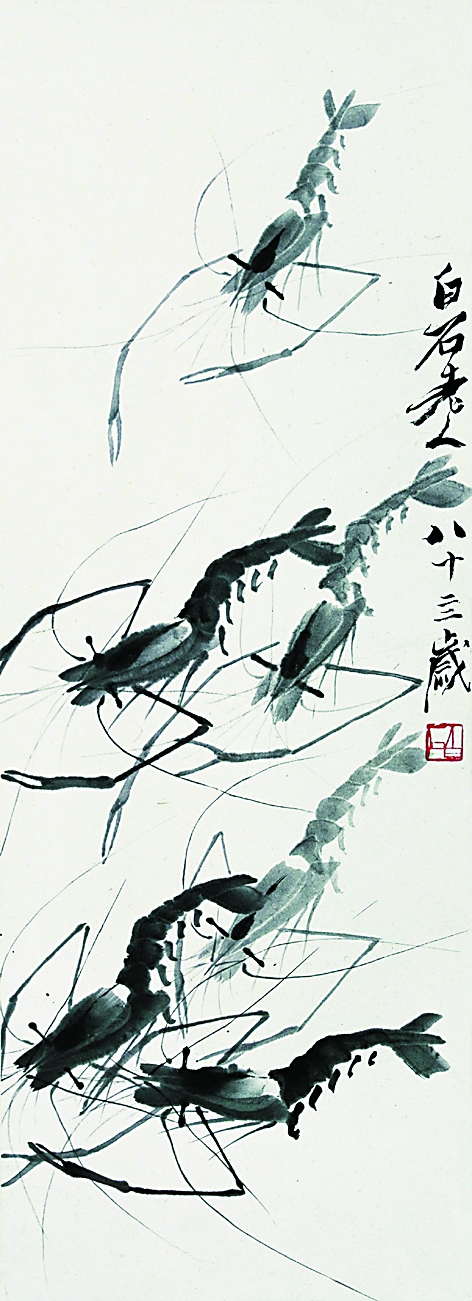 白石老人
八十三歲